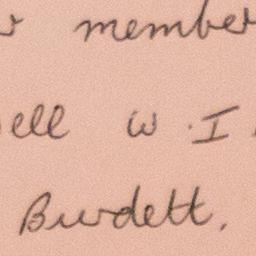 r member
ell W.I.
Burdett.